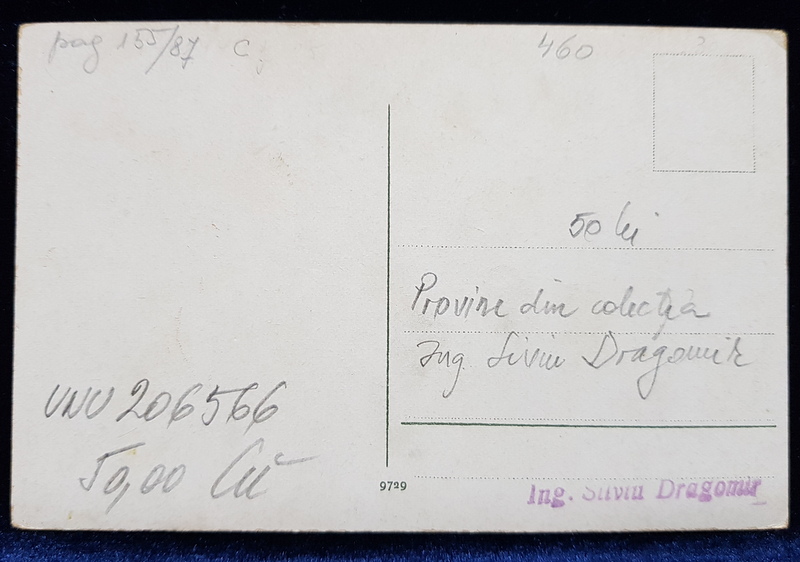 pag 155/87 C
460
50 lei
Provine din colecția
Ing. Silviu Dragomir
UNU 206566
50,00 lei
9729
Ing. Silviu Dragomir